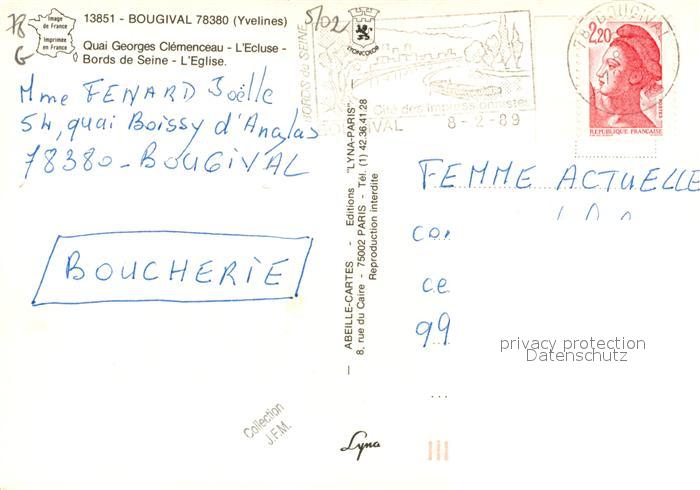 78
G
Image de France
Imprimée en France
13851 - BOUGIVAL 78380 (Yvelines)
Quai Georges Clémenceau - L'Ecluse -
Bords de Seine - L'Eglise.
5/02
Mme FENARD Joëlle
54, quai Boissy d'Anglas
78380 - BOUGIVAL
BOUCHERIE
Collection
J.F.M.
BORDS de SEINE
Cité des impressionnistes
BOUGIVAL 8-2-89
78 BOUGIVAL
2,20
REPUBLIQUE FRANÇAISE
ABEILLE-CARTES - Editions "LYNA-PARIS"
8, rue du Caire - 75002 PARIS - Tél. (1) 42.36.41.28
Reproduction interdite
Lyna
FEMME ACTUELLE
ce
99
privacy protection
Datenschutz